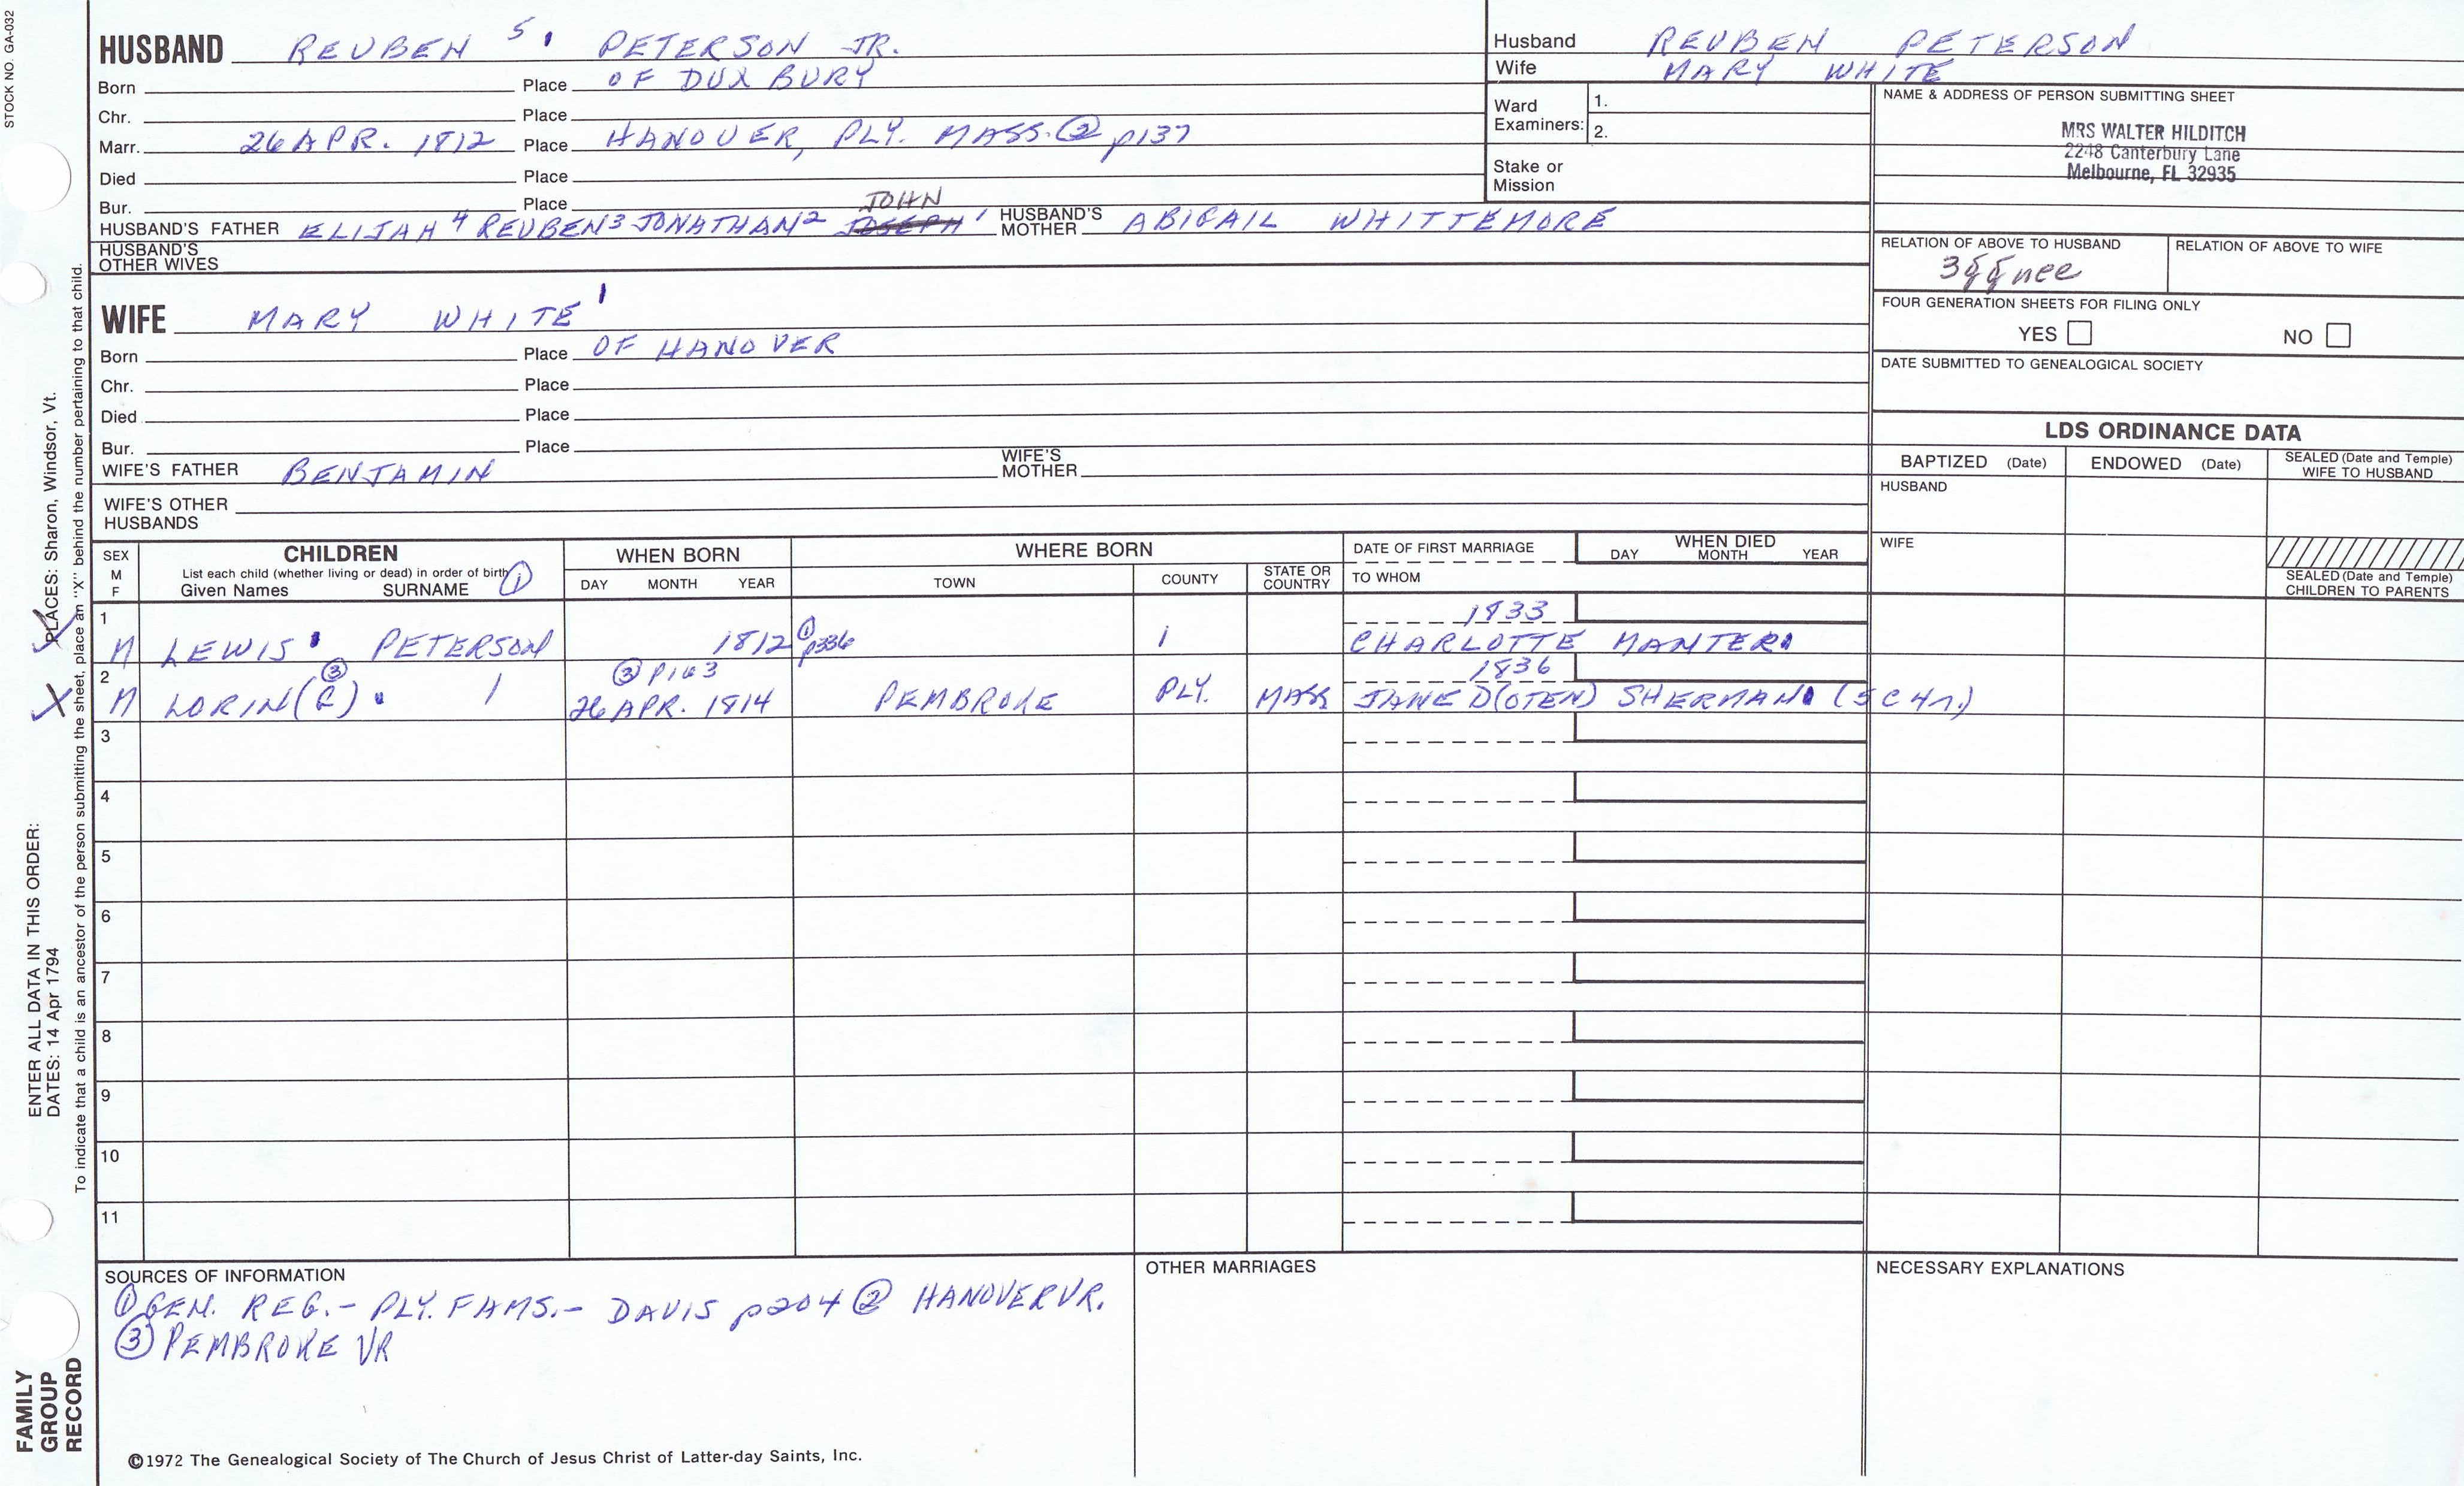 STOCK NO. GA-032
HUSBAND REUBEN 5 1 PETERSON JR.
Born Place OF DUXBURY
Chr. Place
Marr. 26 APR. 1812 Place HANOVER, PLY. MASS. ② p137
Died Place
Bur. Place
JOHN
HUSBAND'S FATHER ELIJAH 4 REUBEN 3 JONATHAN 2 JOSEPH 1 HUSBAND'S MOTHER ABIGAIL WHITTEMORE
HUSBAND'S OTHER WIVES
WIFE MARY WHITE 1
Born Place OF HANOVER
Chr. Place
Died Place
Bur. Place
WIFE'S FATHER BENJAMIN WIFE'S MOTHER
WIFE'S OTHER HUSBANDS
Husband REUBEN PETERSON
Wife MARY WHITE
Ward Examiners: 1.
2.
Stake or Mission
NAME & ADDRESS OF PERSON SUBMITTING SHEET
MRS WALTER HILDITCH
2248 Canterbury Lane
Melbourne, FL 32935
RELATION OF ABOVE TO HUSBAND RELATION OF ABOVE TO WIFE
3ggnee
FOUR GENERATION SHEETS FOR FILING ONLY
YES NO
DATE SUBMITTED TO GENEALOGICAL SOCIETY
LDS ORDINANCE DATA
BAPTIZED (Date) ENDOWED (Date) SEALED (Date and Temple) WIFE TO HUSBAND
HUSBAND
WIFE
SEALED (Date and Temple) CHILDREN TO PARENTS
SEX M F
CHILDREN
List each child (whether living or dead) in order of birth ①
Given Names SURNAME
WHEN BORN
DAY MONTH YEAR
WHERE BORN
TOWN COUNTY STATE OR COUNTRY
DATE OF FIRST MARRIAGE
TO WHOM
WHEN DIED
DAY MONTH YEAR
1 1833
M LEWIS PETERSON 1812 ① p336 CHARLOTTE MANTER
2 ③ ③ p163 1836
M LORIN(R) 26 APR. 1814 PEMBROKE PLY. MASS JANE D(OTEN) SHERMAN (5C4r.)
3
4
5
6
7
8
9
10
11
SOURCES OF INFORMATION
① GEN. REG. - PLY. FAMS. - DAVIS p204 ② HANOVER VR.
③ PEMBROKE VR
OTHER MARRIAGES
NECESSARY EXPLANATIONS
©1972 The Genealogical Society of The Church of Jesus Christ of Latter-day Saints, Inc.
FAMILY GROUP RECORD
ENTER ALL DATA IN THIS ORDER:
DATES: 14 Apr 1794 PLACES: Sharon, Windsor, Vt.
To indicate that a child is an ancestor of the person submitting the sheet, place an "X" behind the number pertaining to that child.
X
X